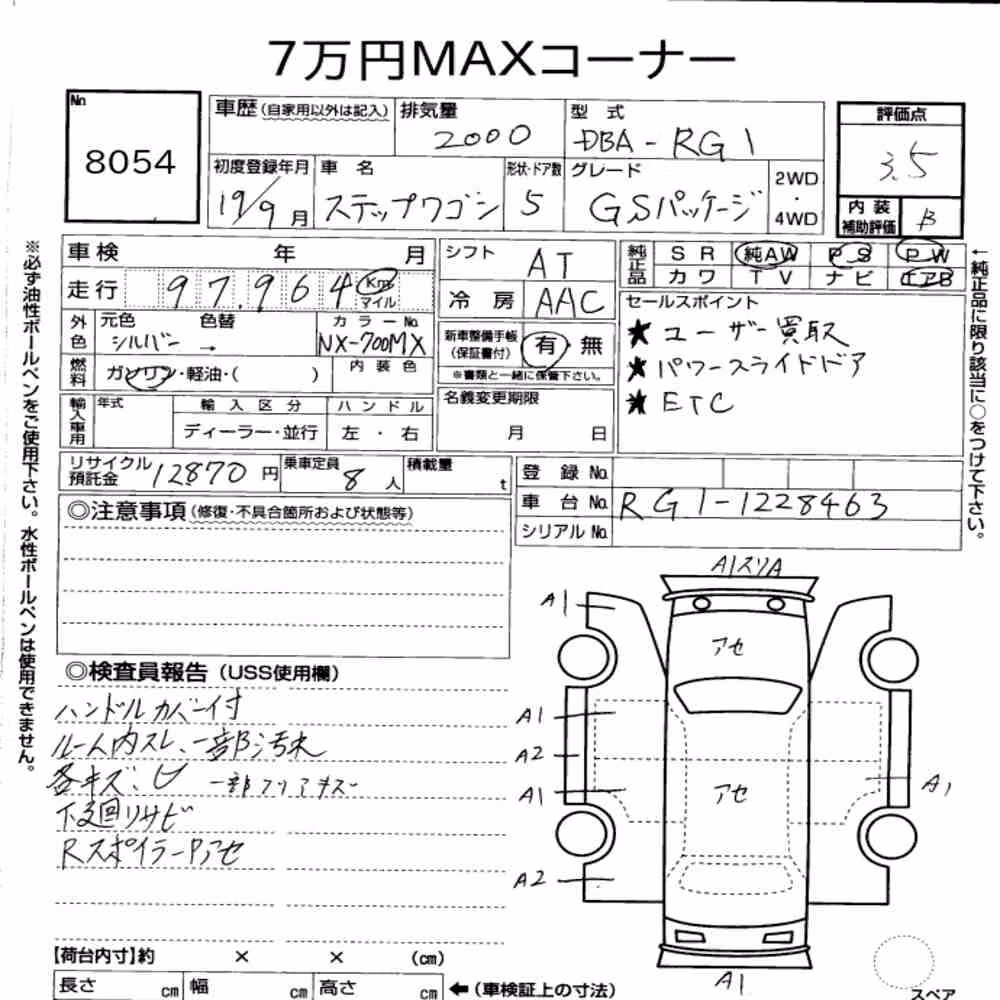 7万円MAXコーナー
No 8054
車歴(自家用以外は記入) 排気量 2000 型式 DBA-RG1 評価点 3.5
初度登録年月 19/9月 車名 ステップワゴン 形状・ドア数 5 グレード GSパッケージ 2WD・4WD 内装補助評価 B
車検 年 月 シフト AT 純正品 SR 純AW PS PW
走行 97,964 Km マイル 冷房 AAC カワ TV ナビ エアB
外色 元色 シルバー 色替 → カラーNo. NX-700MX
内装色
燃料 ガソリン・軽油・( )
新車整備手帳(保証書付) 有 無
※書類と一緒に保管下さい。
セールスポイント
★ユーザー買取
★パワースライドドア
★ETC
輸入車用 年式 輸入区分 ディーラー・並行 ハンドル 左・右
名義変更期限 月 日
リサイクル預託金 12870円 乗車定員 8人 積載量 t
登録No.
車台No. RG1-1228463
シリアルNo.
※必ず油性ボールペンをご使用下さい。水性ボールペンは使用できません。
←純正品に限り該当に○をつけて下さい。
◎注意事項(修復・不具合箇所および状態等)
◎検査員報告(USS使用欄)
ハンドルカバー付
ルーム内スレ、一部汚れ
各キズ、ヒ
下廻りサビ
RスポイラーPアセ
A1スリA
A1
アセ
A1
A2
A1 アセ A1
A2
A1
【荷台内寸】約 × × (cm)
長さ cm 幅 cm 高さ cm ←(車検証上の寸法)
スペア